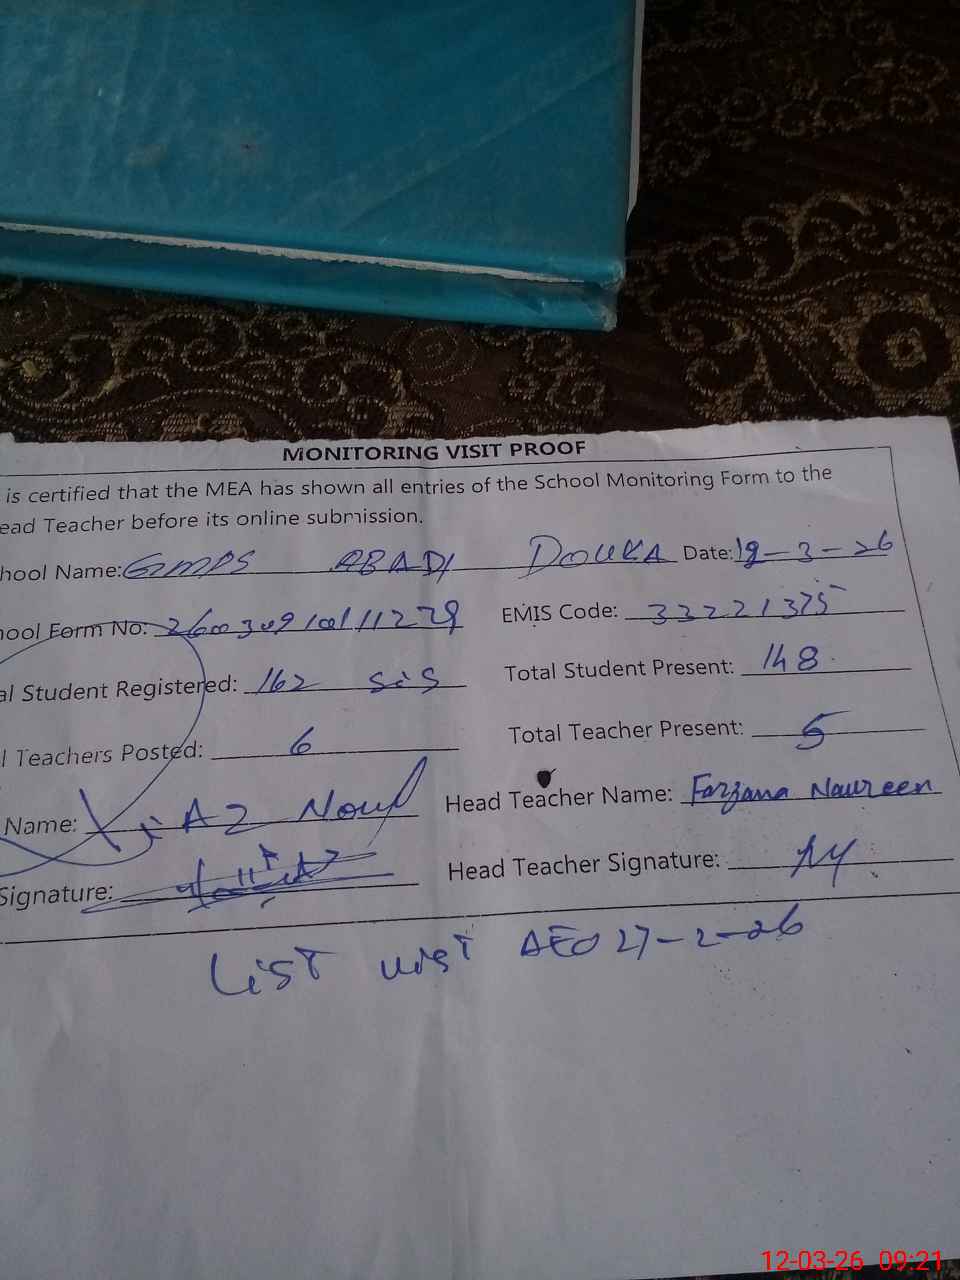 MONITORING VISIT PROOF
is certified that the MEA has shown all entries of the School Monitoring Form to the
ead Teacher before its online submission.
hool Name: GMPS ABADI DOUKA Date: 12-3-26
hool Form No: EMIS Code: 33221375
al Student Registered: 162 SIS Total Student Present: 148
l Teachers Posted: 6 Total Teacher Present: 5
Name: Head Teacher Name: Farzana Naureen
Signature: Head Teacher Signature:
LIST VIST AEO 27-2-26
12-03-26 09:21